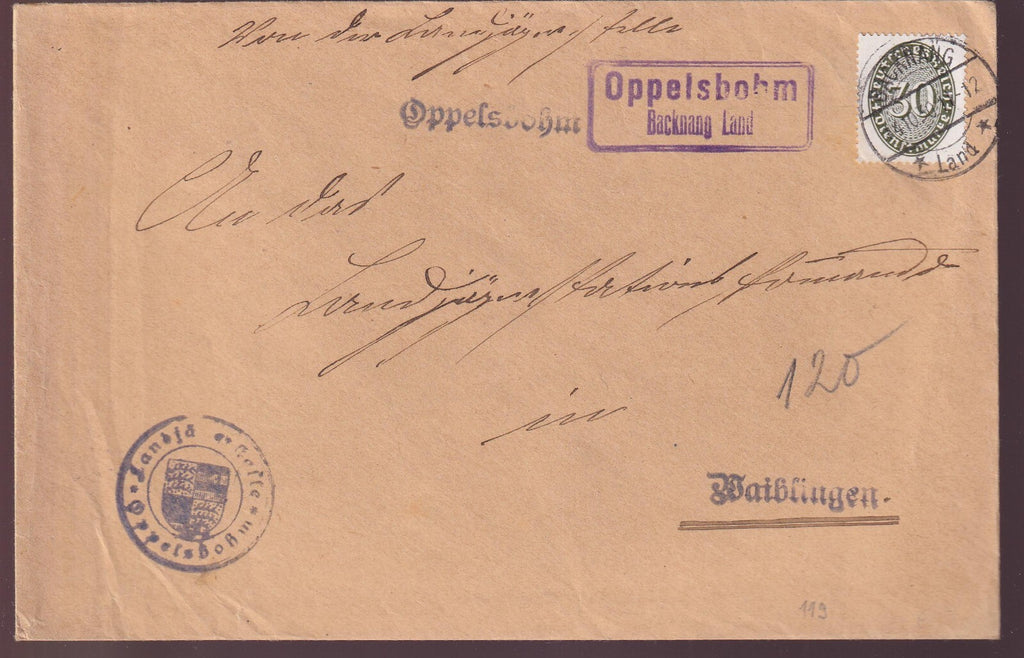 Von der Landjägerstelle
Oppelsbohm
Oppelsbohm
Backnang Land
BACKNANG
-12
★ Land ★
30
An das
Landjägerstationskommando
in
120
Waiblingen.
Landjä erstelle
★ Oppelsbohm ★
119